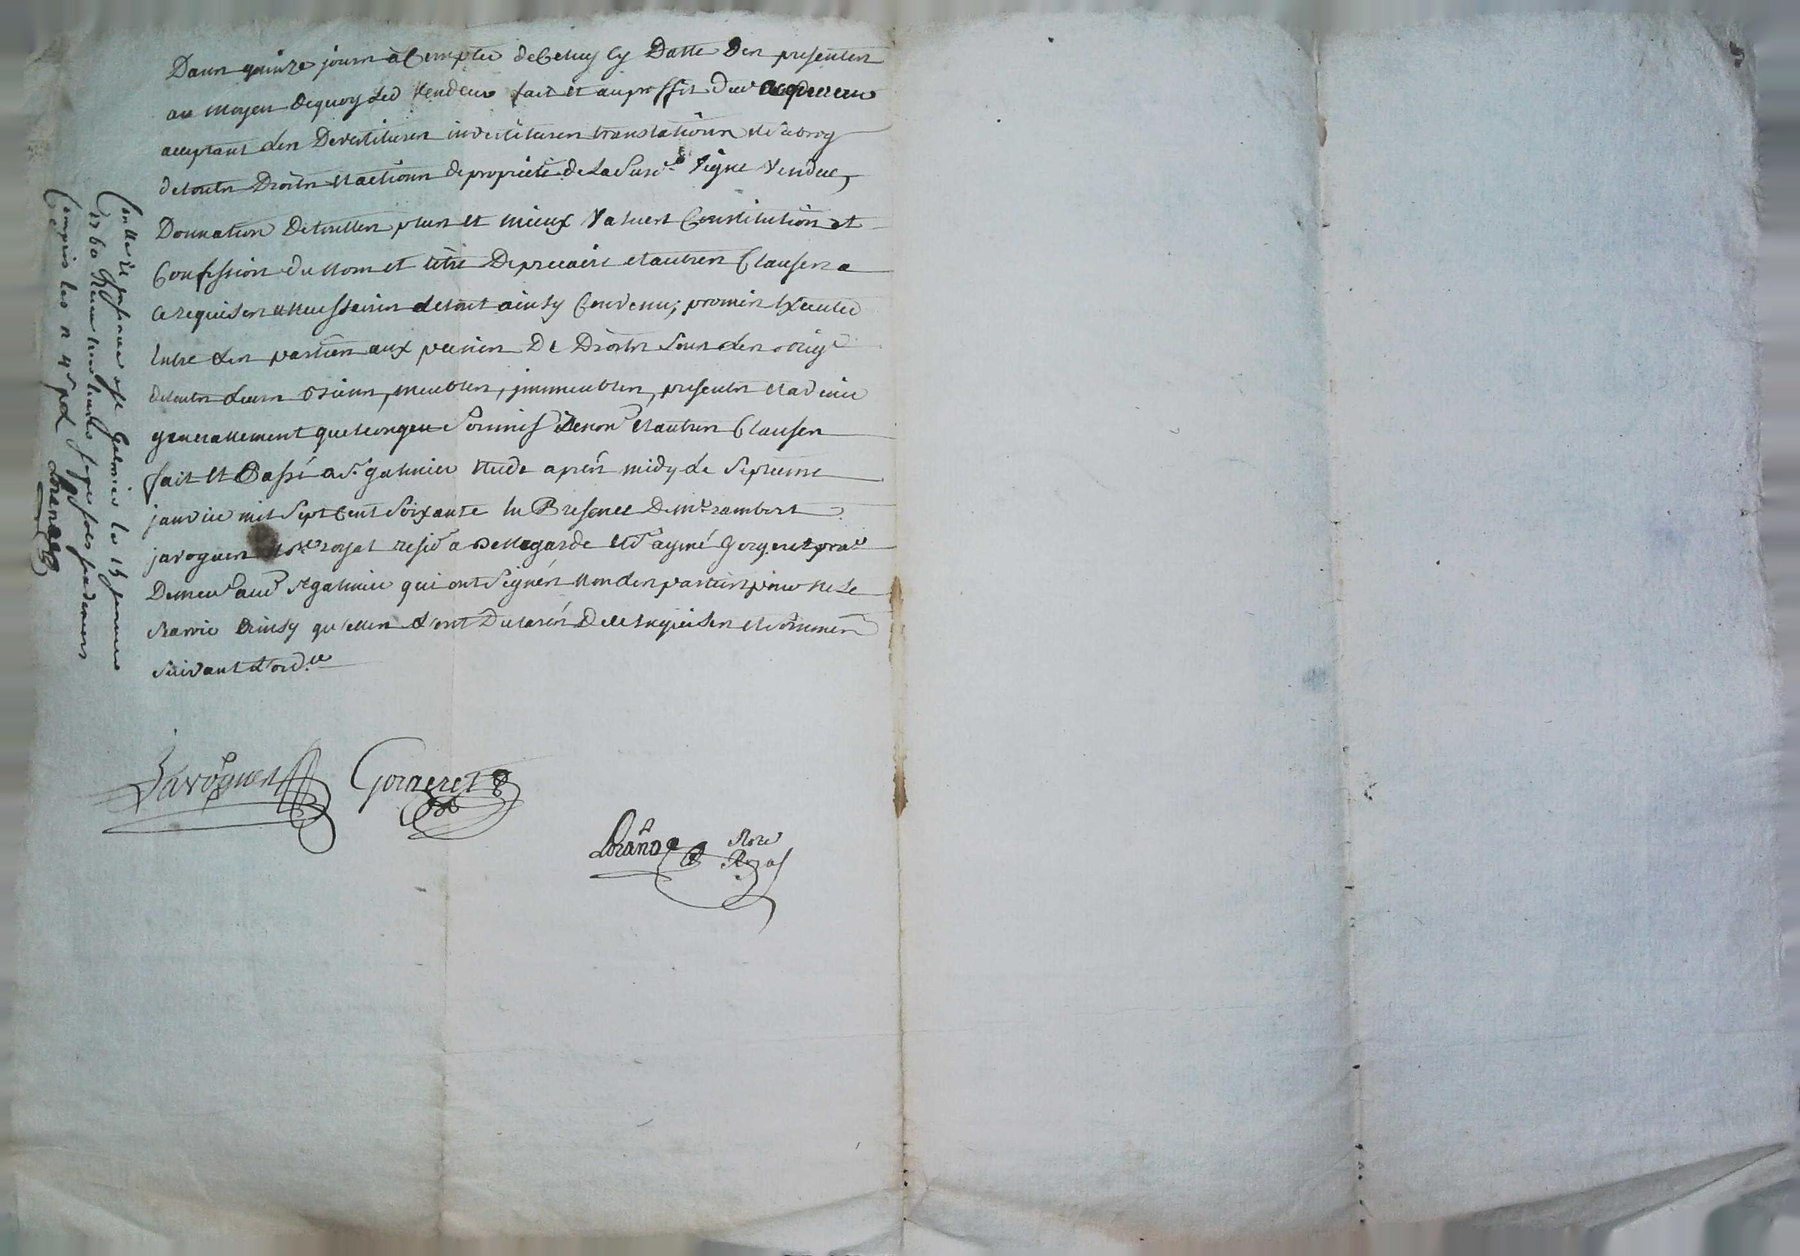 Dans quinze jours à Compter de Celuy Cy Datte Des presentes
au moyen dequoy Led Vendeur fait et au proffit Dud acquereur
acceptant Les Devestitures investitures translations et subrog
de touts Droits et actions de propriété de La Susd.e Vigne Vendue,
Donnation De touttes plus et mieux Values Constitution et
Confession du nom et titre De precaire et autres Clauses a
Ce requises et necessaires Le tout ainsy Convenu; promis Executer
Entre Les parties aux peines De Droits Sous Les oblig.
de touts Leurs Biens, meubles, immeubles, presents et advenir
generallement quelconques Soumis Renon. et autres Clauses
fait et Passé a St galmier Etude après midy Le Septieme
janvier mil Sept Cent Soixante En Presence De m.e rambert
javogues No.re royal resid a Bellegarde et S.r aymé Gorgeret prat.
Demeu. aud St galmier qui ont Signés Non Les parties pour ne Le
Scavoir Ainsy qu'elles L'ont Declarés De ce Enquises et Sommées
Suivant L'ord.ce
Javogues Gorgeret
Lorande Not.re Royal
Conllé le St Galmier le 15 janvier
1760 Reçu
Compris les n 4s pol Lorande